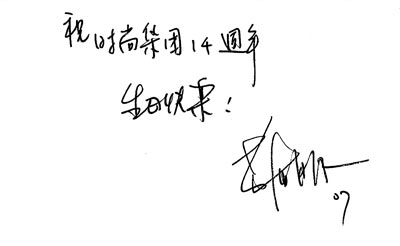 祝时尚集团14週年
生日快乐!
07